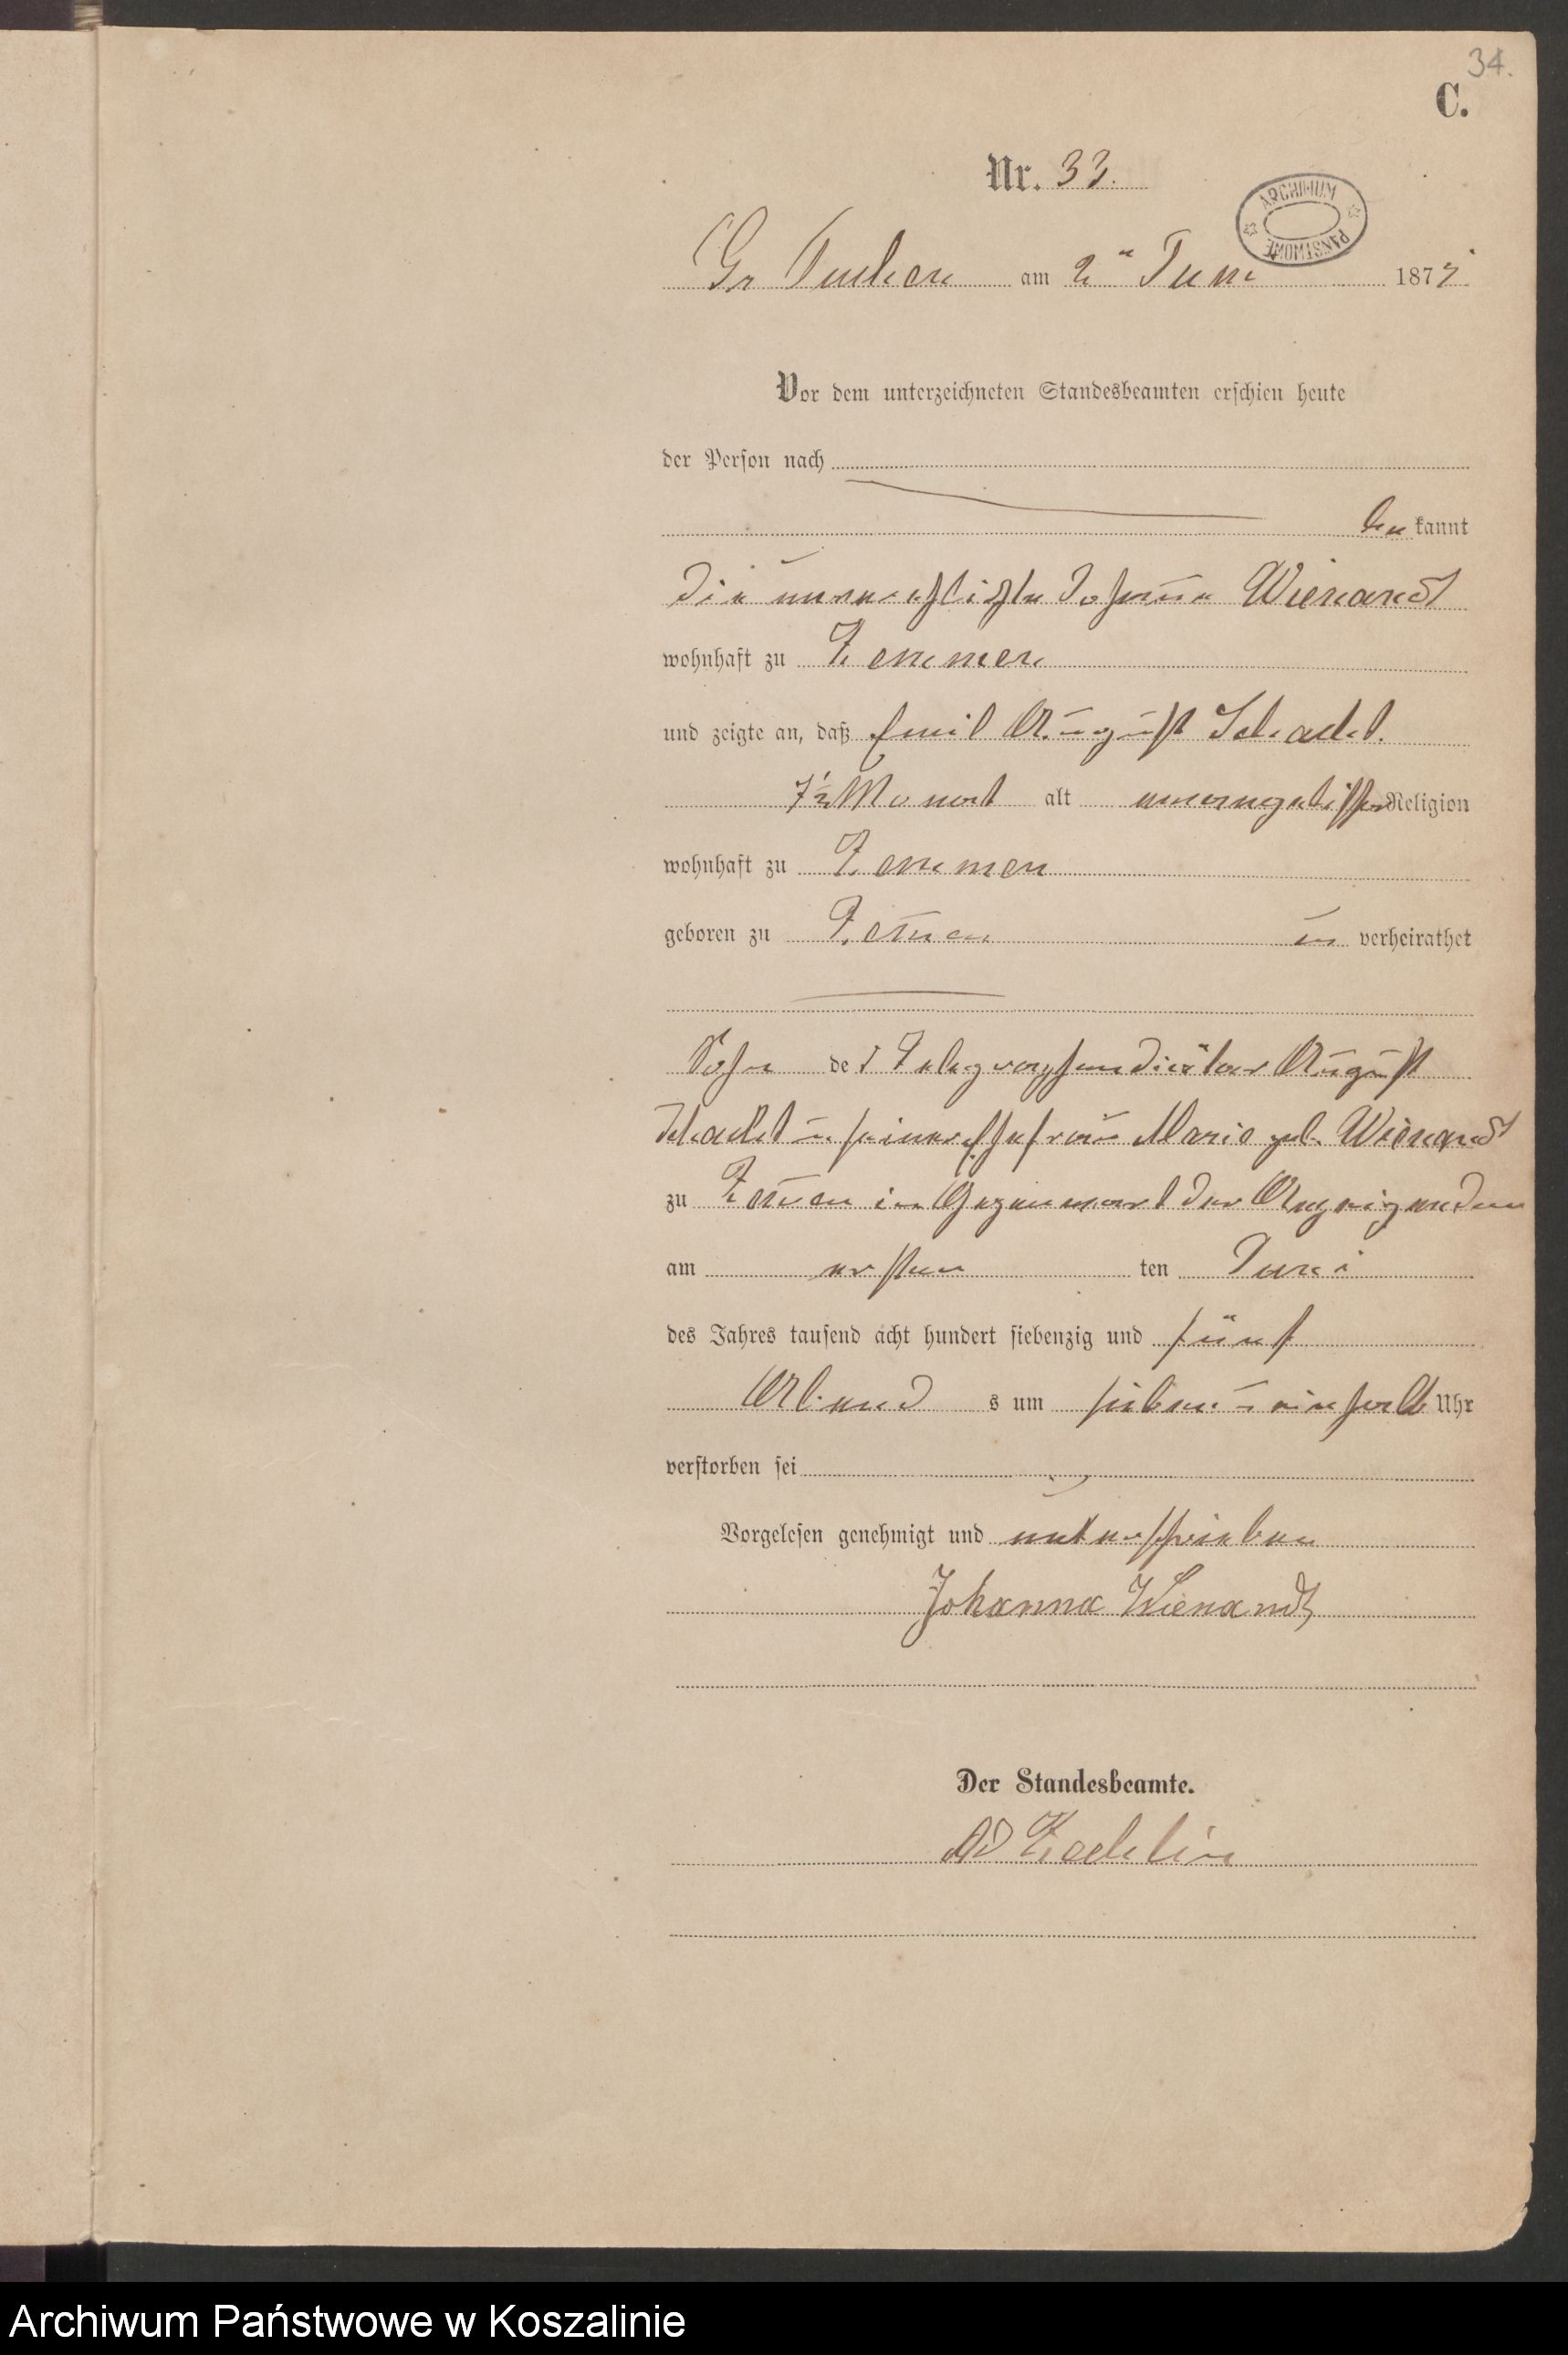 34.
C.
Nr. 33.
ARCHIWUM PAŃSTWOWE
Gr Tuchen am 2ten Juni 1875
Vor dem unterzeichneten Standesbeamten erschien heute
der Person nach
bekannt
die unverehelichte Johanna Wienandt
wohnhaft zu Zemmen
und zeigte an, daß Emil August Schacht.
7½ Monat alt evangelischer Religion
wohnhaft zu Zemmen
geboren zu Zem̄en unverheirathet
Sohn des August
Schacht u seiner Ehefrau Marie geb. Wienandt
zu Zem̄en in Gegenwart der Anzeigenden
am ersten ten Juni
des Jahres tausend acht hundert siebenzig und fünf
Abend s um sieben u ein halb Uhr
verstorben sei
Vorgelesen genehmigt und unterschrieben
Johanna Wienandt
Der Standesbeamte.
Archiwum Państwowe w Koszalinie